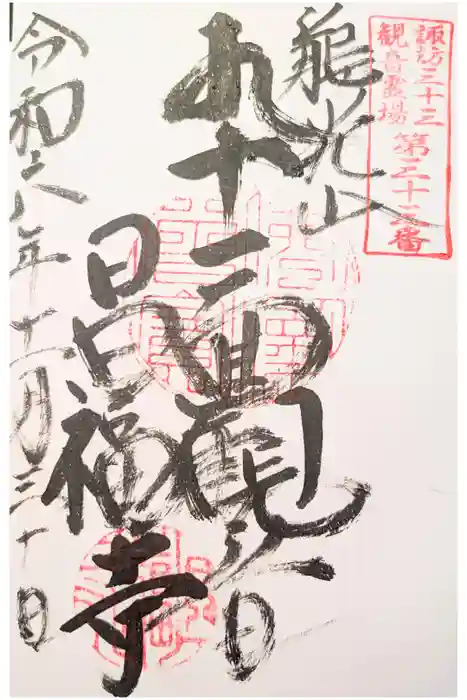 諏訪三十三
観音霊場 第三十三番
龍光山
十一面観世音
昌福寺
令和六年十一月三十日